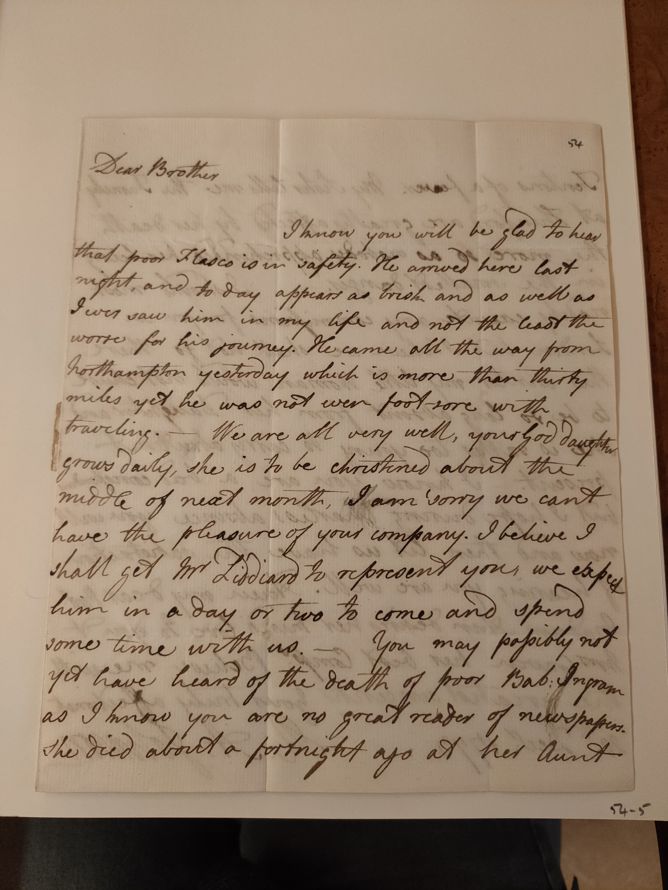 54
Dear Brother
I know you will be glad to hear
that poor Flasco is in safety. He arrived here last
night, and to day appears as brisk and as well as
I ever saw him in my life and not the least the
worse for his journey. He came all the way from
Northampton yesterday which is more than thirty
miles yet he was not even foot-sore with
traveling. — We are all very well, your God daughter
grows daily, she is to be christined about the
middle of next month, I am sorry we cant
have the pleasure of your company. I believe I
shall get Mr Liddiard to represent you, we expect
him in a day or two to come and spend
some time with us. — You may possibly not
yet have heard of the death of poor Bab: Ingram
as I know you are no great reader of newspapers.
she died about a fortnight ago at her Aunt
54-5